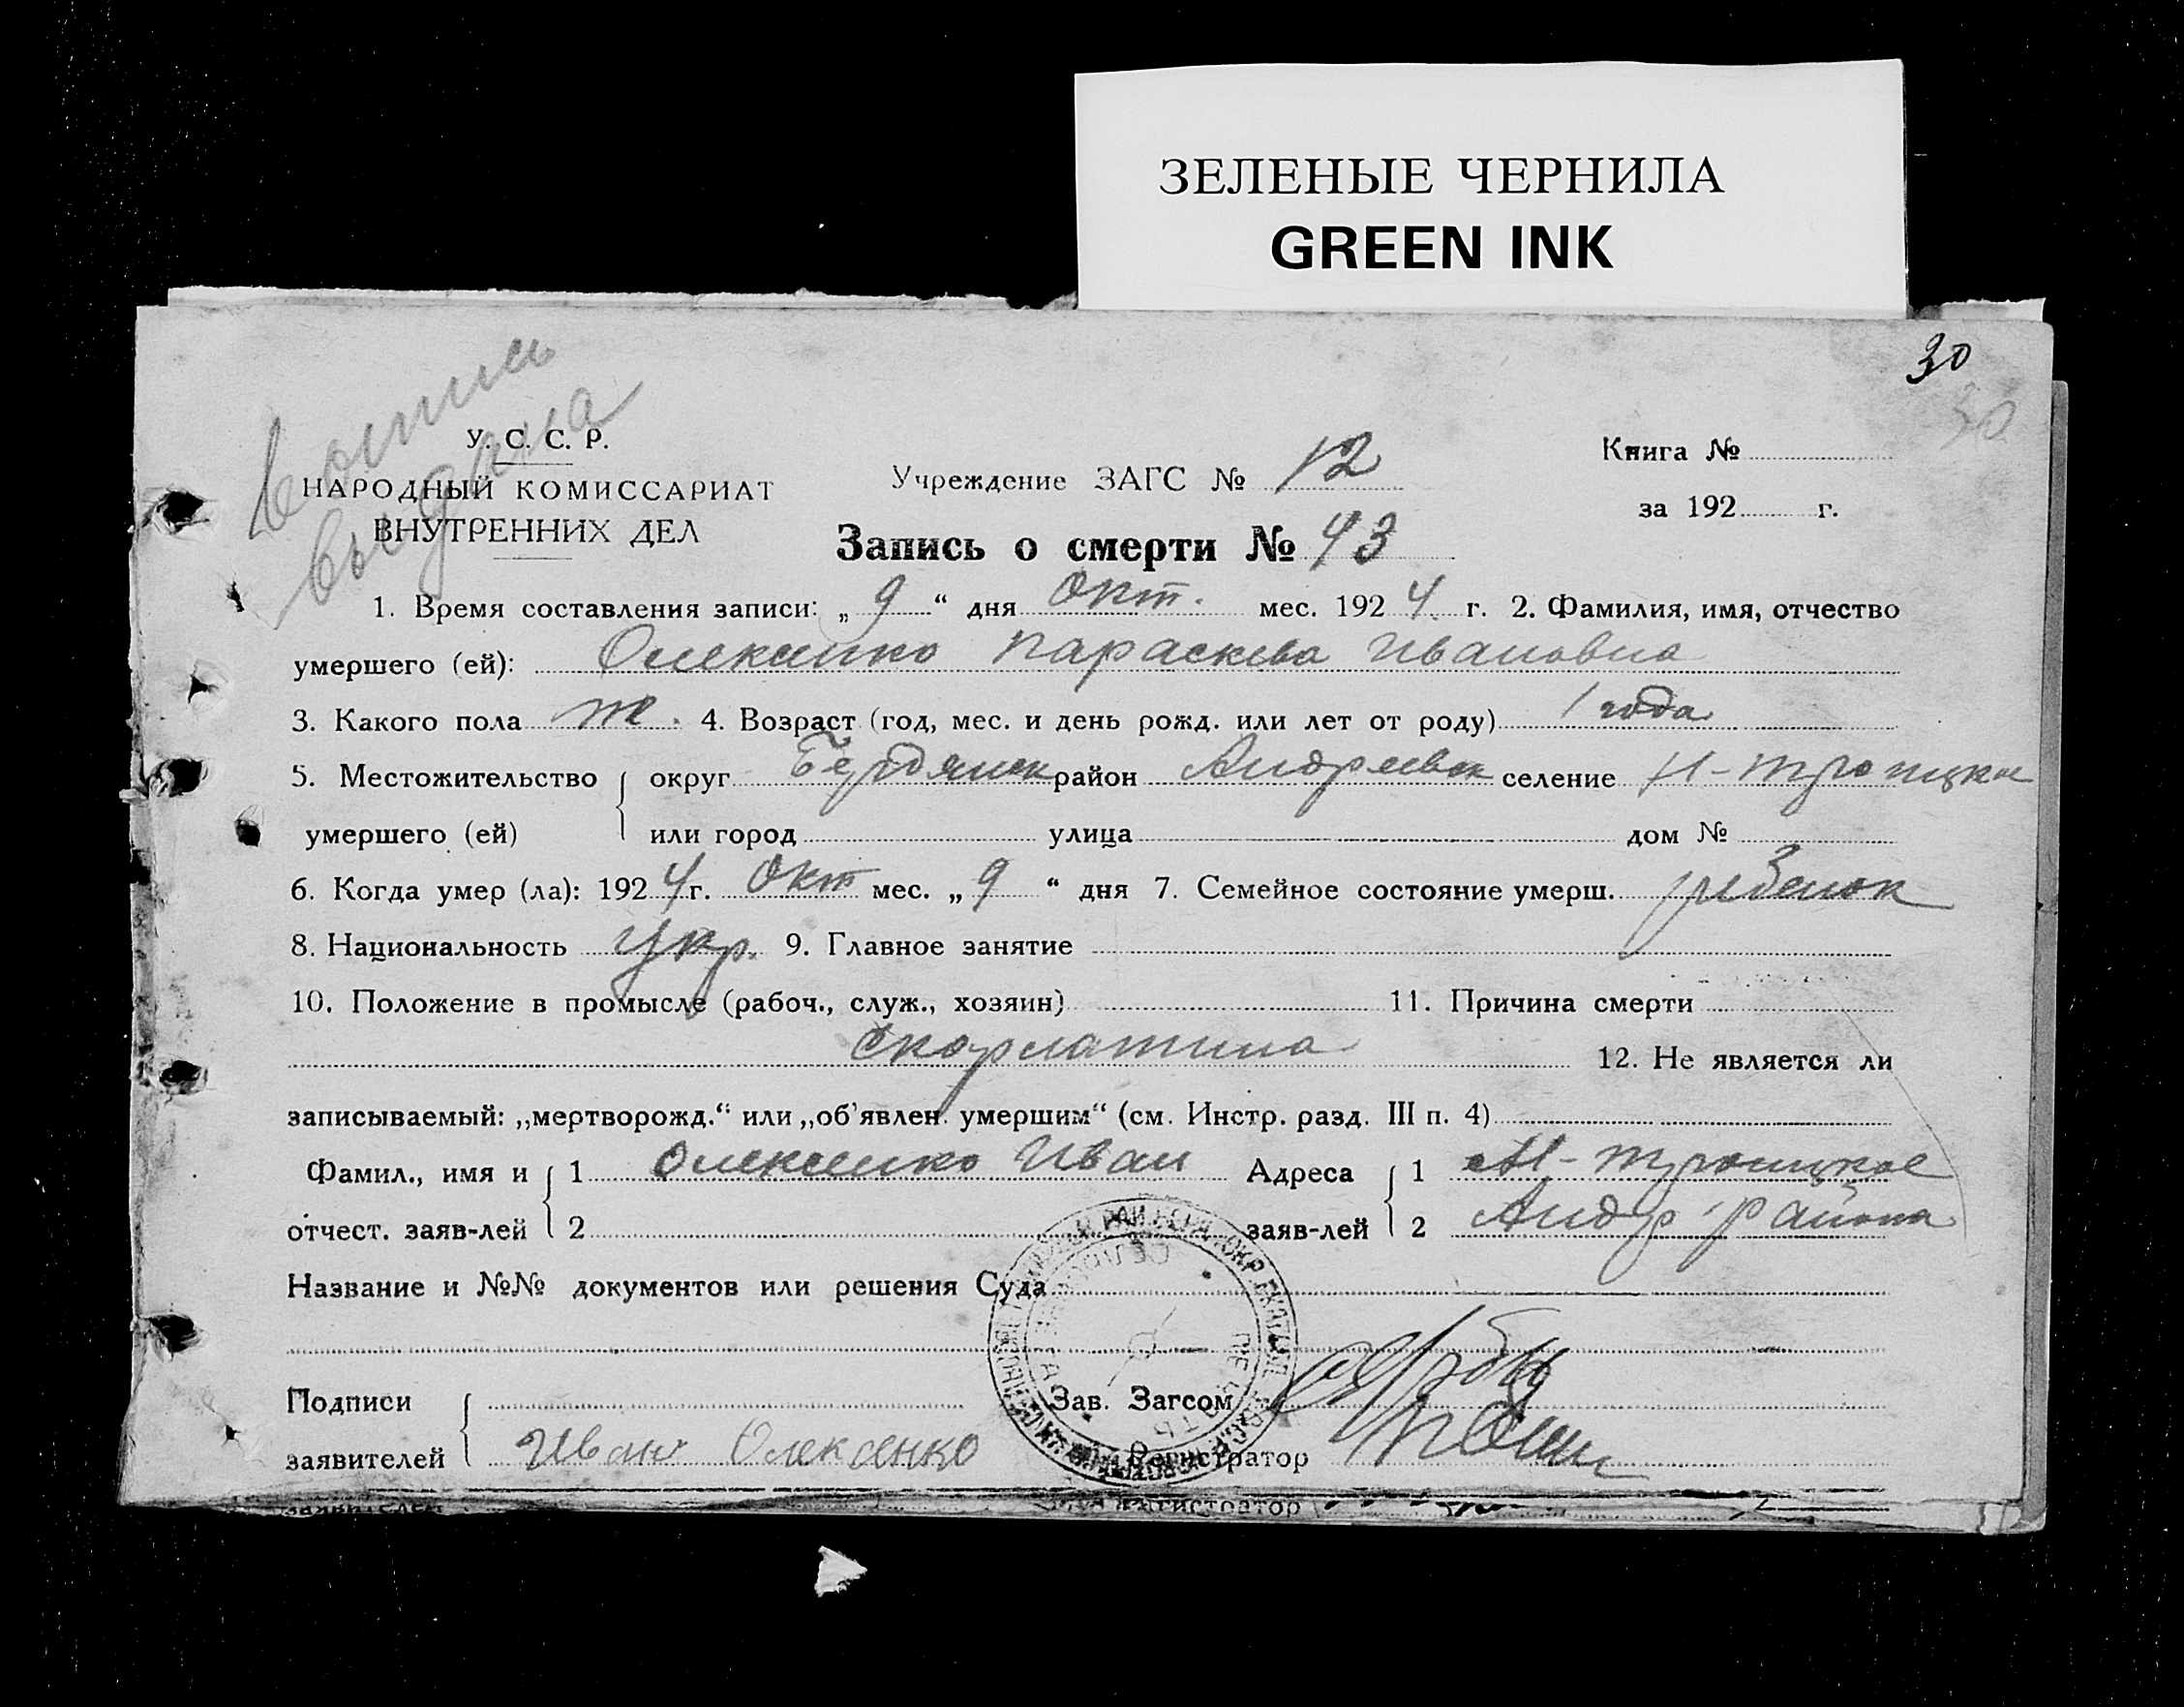 ЗЕЛЕНЫЕ ЧЕРНИЛА
GREEN INK
30
30
выдана
У. С. С. Р.
НАРОДНЫЙ КОМИССАРИАТ
ВНУТРЕННИХ ДЕЛ
Учреждение ЗАГС № 12
Книга №
за 192 г.
Запись о смерти № 43
1. Время составления записи: „ 9 “ дня Окт. мес. 1924 г. 2. Фамилия, имя, отчество
умершего (ей): Олексенко Параскева Ивановна
3. Какого пола ж. 4. Возраст (год, мес. и день рожд. или лет от роду) 1 года
5. Местожительство округ Бердянск район Андреевск селение Н-Троицкое
умершего (ей) или город улица дом №
6. Когда умер (ла): 1924 г. Окт мес. „ 9 “ дня 7. Семейное состояние умерш. ребенок
8. Национальность Укр. 9. Главное занятие
10. Положение в промысле (рабоч., служ., хозяин) 11. Причина смерти
скорлатина 12. Не является ли
записываемый: „мертворожд.“ или „об’явлен. умершим“ (см. Инстр. разд. III п. 4)
Фамил., имя и 1 Олексенко Иван Адреса 1 Н-Троицкое
отчест. заяв-лей 2 заяв-лей 2 Андр района
Название и №№ документов или решения Суда
Подписи Зав. Загсом
заявителей Иван Олексенко Регистратор